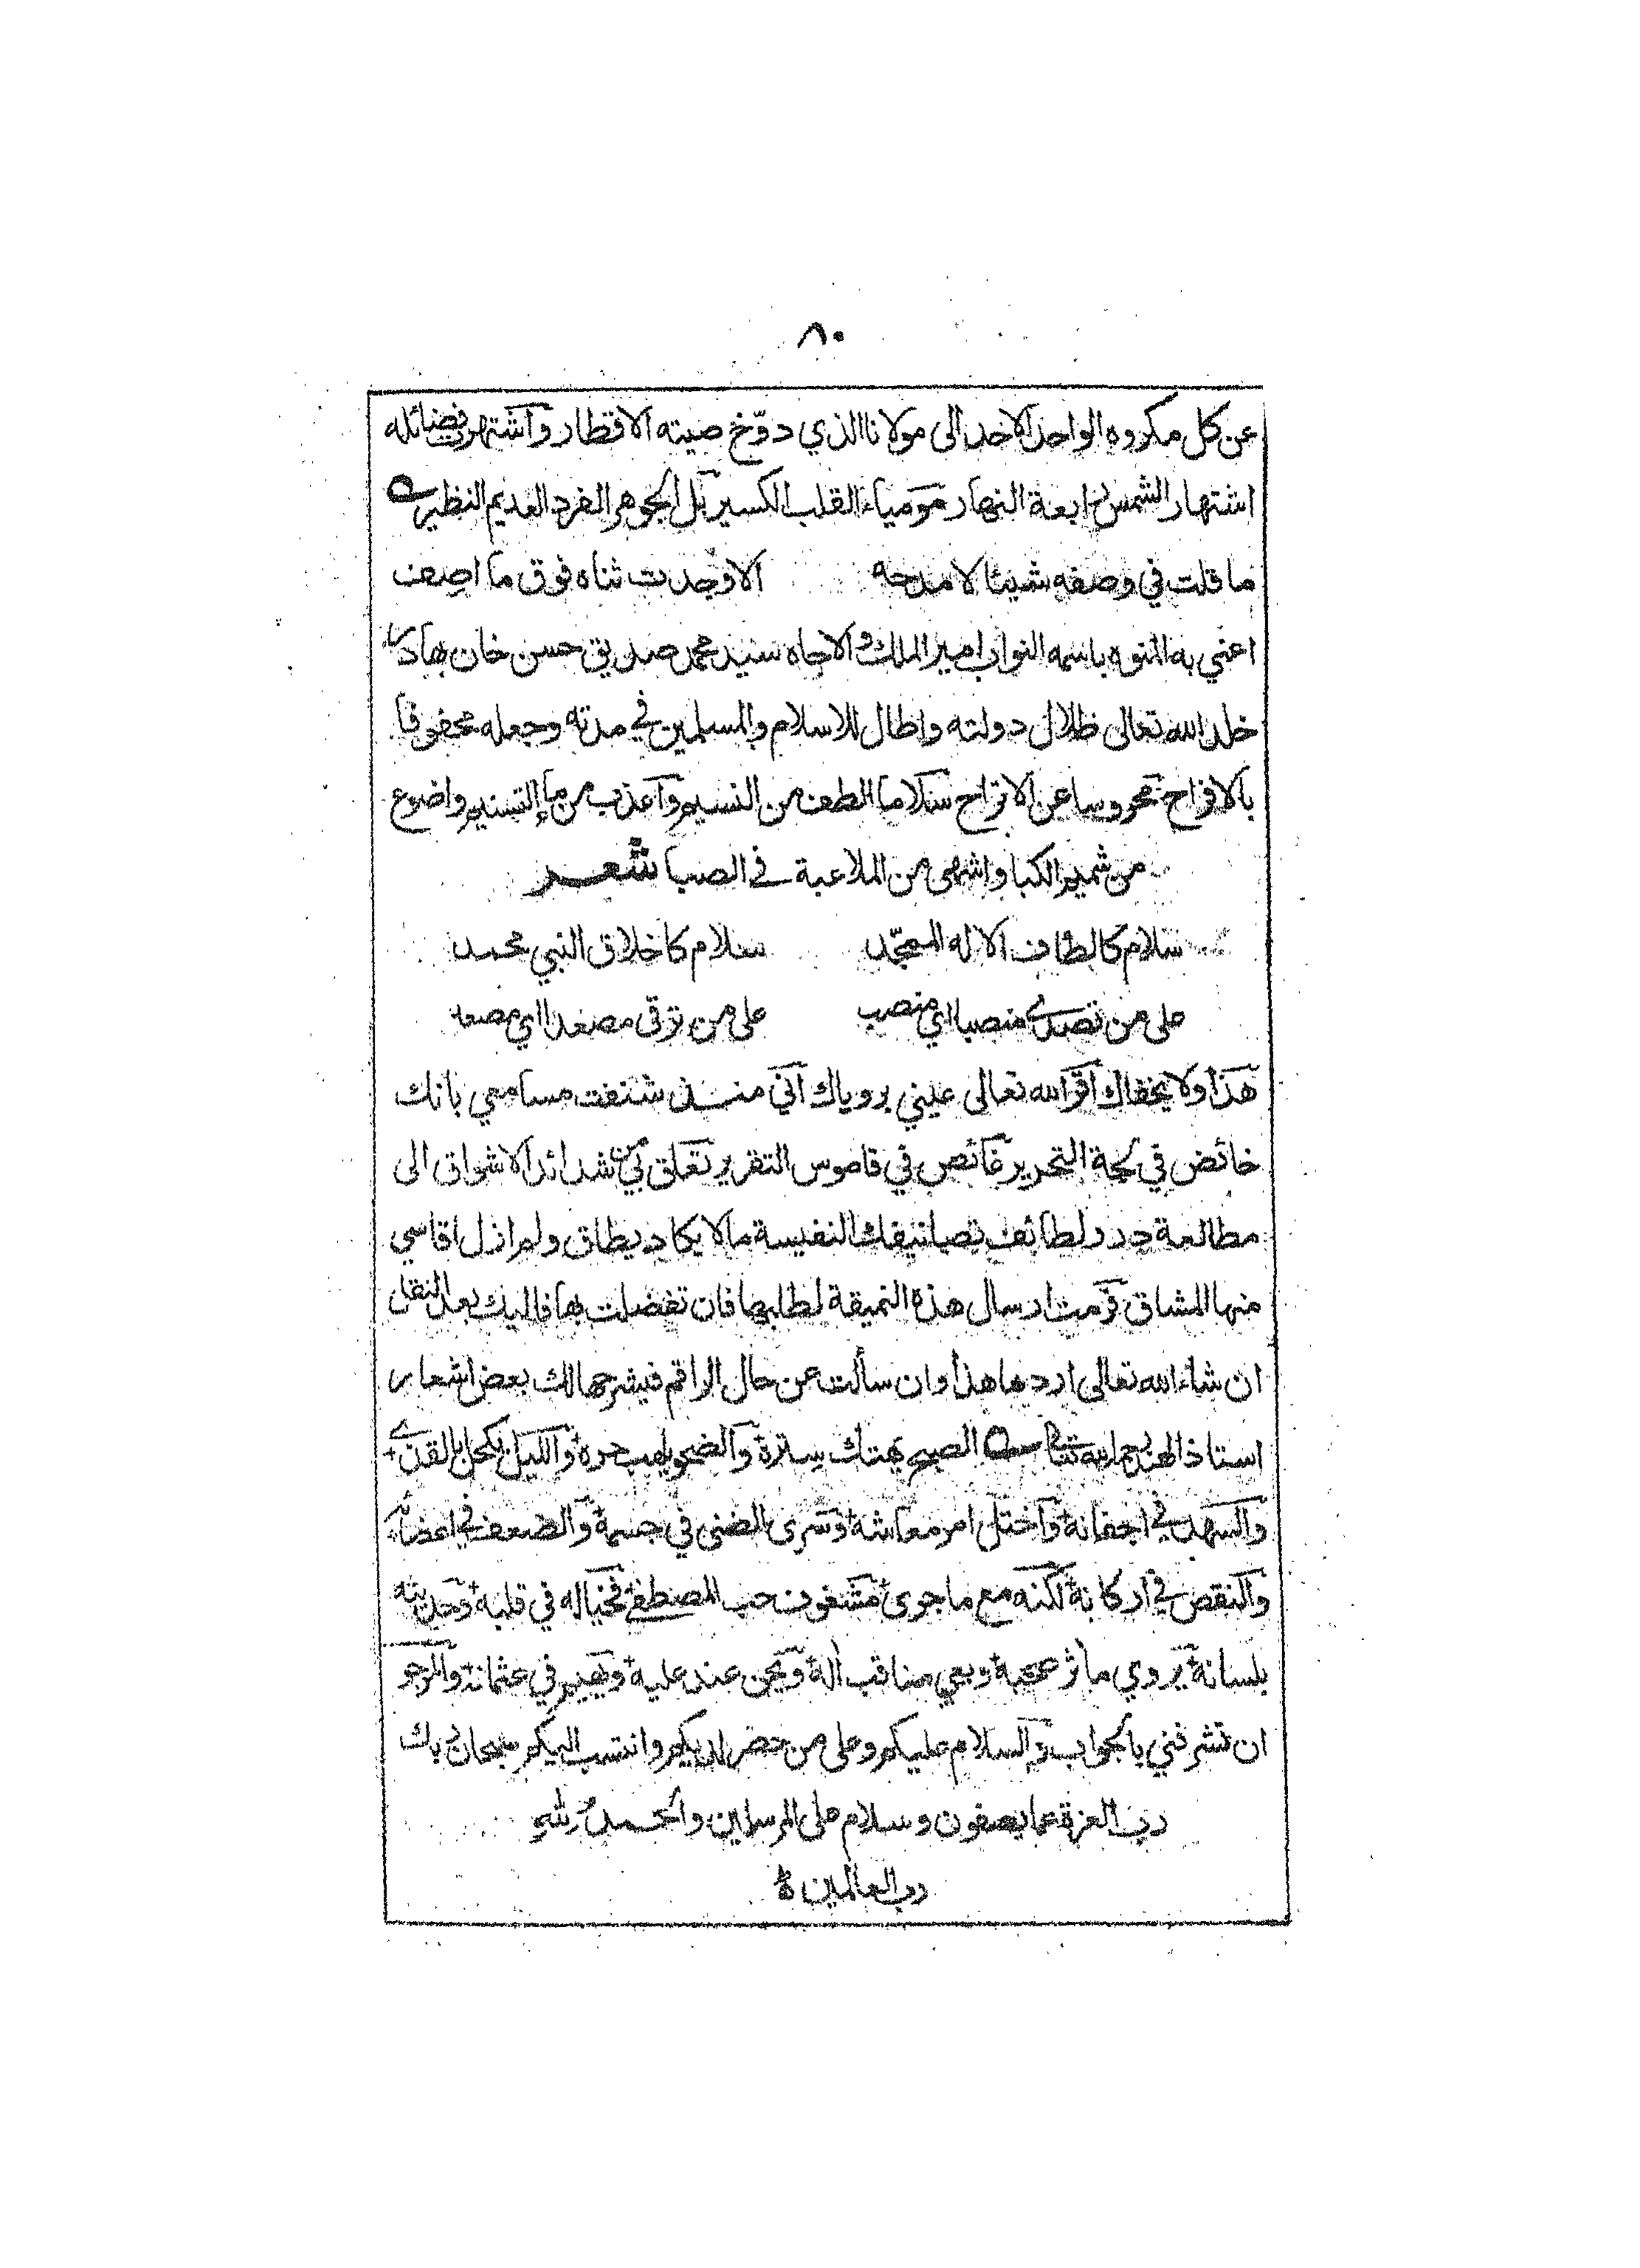 ٨٠
عن كل مكروه الواحد الاحد الى مولانا الذي دوّخ صيته الاقطار واشتهرت فضائله
اشتهار الشمس رابعة النهار مومياء القلب الكسير بل الجوهر الفرد العديم النظير
ما قلت في وصفه شيئا لامدحه الا وجدت ثناه فوق ما اصف
اعني به المنوه باسمه النواب امير الملك والاجاه سيد محمد صديق حسن خان بهادر
خلد الله تعالى ظلال دولته واطال للاسلام والمسلمين في مدته وجعله محفوفا
بالافراح محروسا عن الاتراح سلاما الطف من النسيم واعذب من ماء التسنيم واضوع
من شميم الكبا واشهى من الملاعبة في الصبا شعر
سلام كالطاف الاله الممجّد سلام كاخلاق النبي محمد
على من تصدى منصبا اي منصب على من ترقى مصعدا اي مصعد
هذا ولا يخفاك اقر الله تعالى عيني بروياك اني منذ شنفت مسامعي بانك
خائض في لجة التحرير غائص في قاموس التقرير تعلق بي من شدائد الاشواق الى
مطالعة درر لطائف تصانيفك النفيسة مالا يكاد يطاق ولم ازل اقاسي
منها المشاق فرمت ارسال هذه النميقة لطلبها فان تفضلت بها فاليك بعد النقل
ان شاء الله تعالى اردها هذا وان سألت عن حال الراقم فيشرحها لك بعض اشعار
استاذ الهند رحمه الله تعالى الصبح يهتك ستره والضحو يلهب حره والليل يكحل بالقذى
والسهد في اجفانه واختل امر معاشه وسرى الضنى في جسمه والضعف في اعضائه
والنقص في اركانه لكنه مع ما جوى مشغوف حب المصطفى فخياله في قلبه وحديثه
بلسانه يروي مآثر صحبه ويعي مناقب آله ويحن عند عليه ويهيم في عثمانه والمرجو
ان تشرفني بالجواب والسلام عليكم وعلى من حضر لديكم وانتسب اليكم سبحان ربك
رب العزة عما يصفون وسلام على المرسلين والحمد لله
رب العالمين